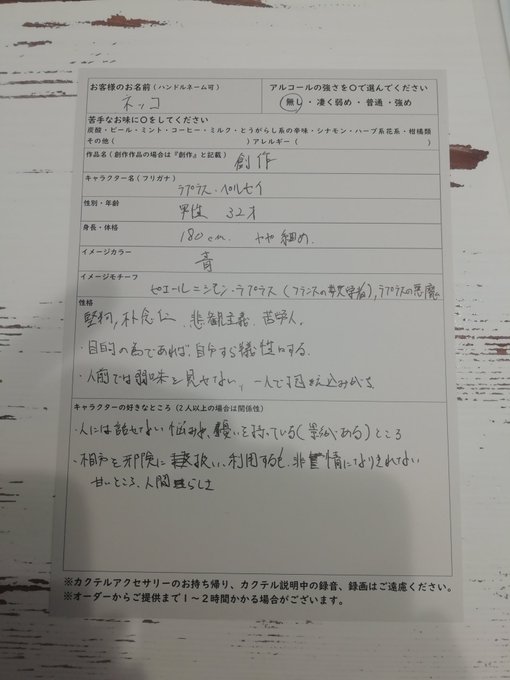 お客様のお名前(ハンドルネーム可)
ネッコ
アルコールの強さを〇で選んでください
無し・凄く弱め・普通・強め
苦手なお味に〇をしてください
炭酸・ビール・ミント・コーヒー・ミルク・とうがらし系の辛味・シナモン・ハーブ系花系・柑橘類
その他( )アレルギー( )
作品名(創作作品の場合は『創作』と記載)
創作
キャラクター名(フリガナ)
ラプラス・ペルセイ
性別・年齢
男性 32才
身長・体格
180cm. やや細め.
イメージカラー
青
イメージモチーフ
ピエール＝シモン・ラプラス(フランスの数学者),ラプラスの悪魔
性格
堅物,朴念仁 悲観主義,苦労人,
・目的の為であれば,自分すら犠牲にする.
・人前では弱味を見せない,一人で抱え込みがち
キャラクターの好きなところ(2人以上の場合は関係性)
・人には話せない悩みや、憂いを持っている( ある)ところ
・相手を邪険に扱い、利用するも、非情になりきれない
甘いところ、人間らしさ
※カクテルアクセサリーのお持ち帰り、カクテル説明中の録音、録画はご遠慮ください。
※オーダーからご提供まで1～2時間かかる場合がございます。